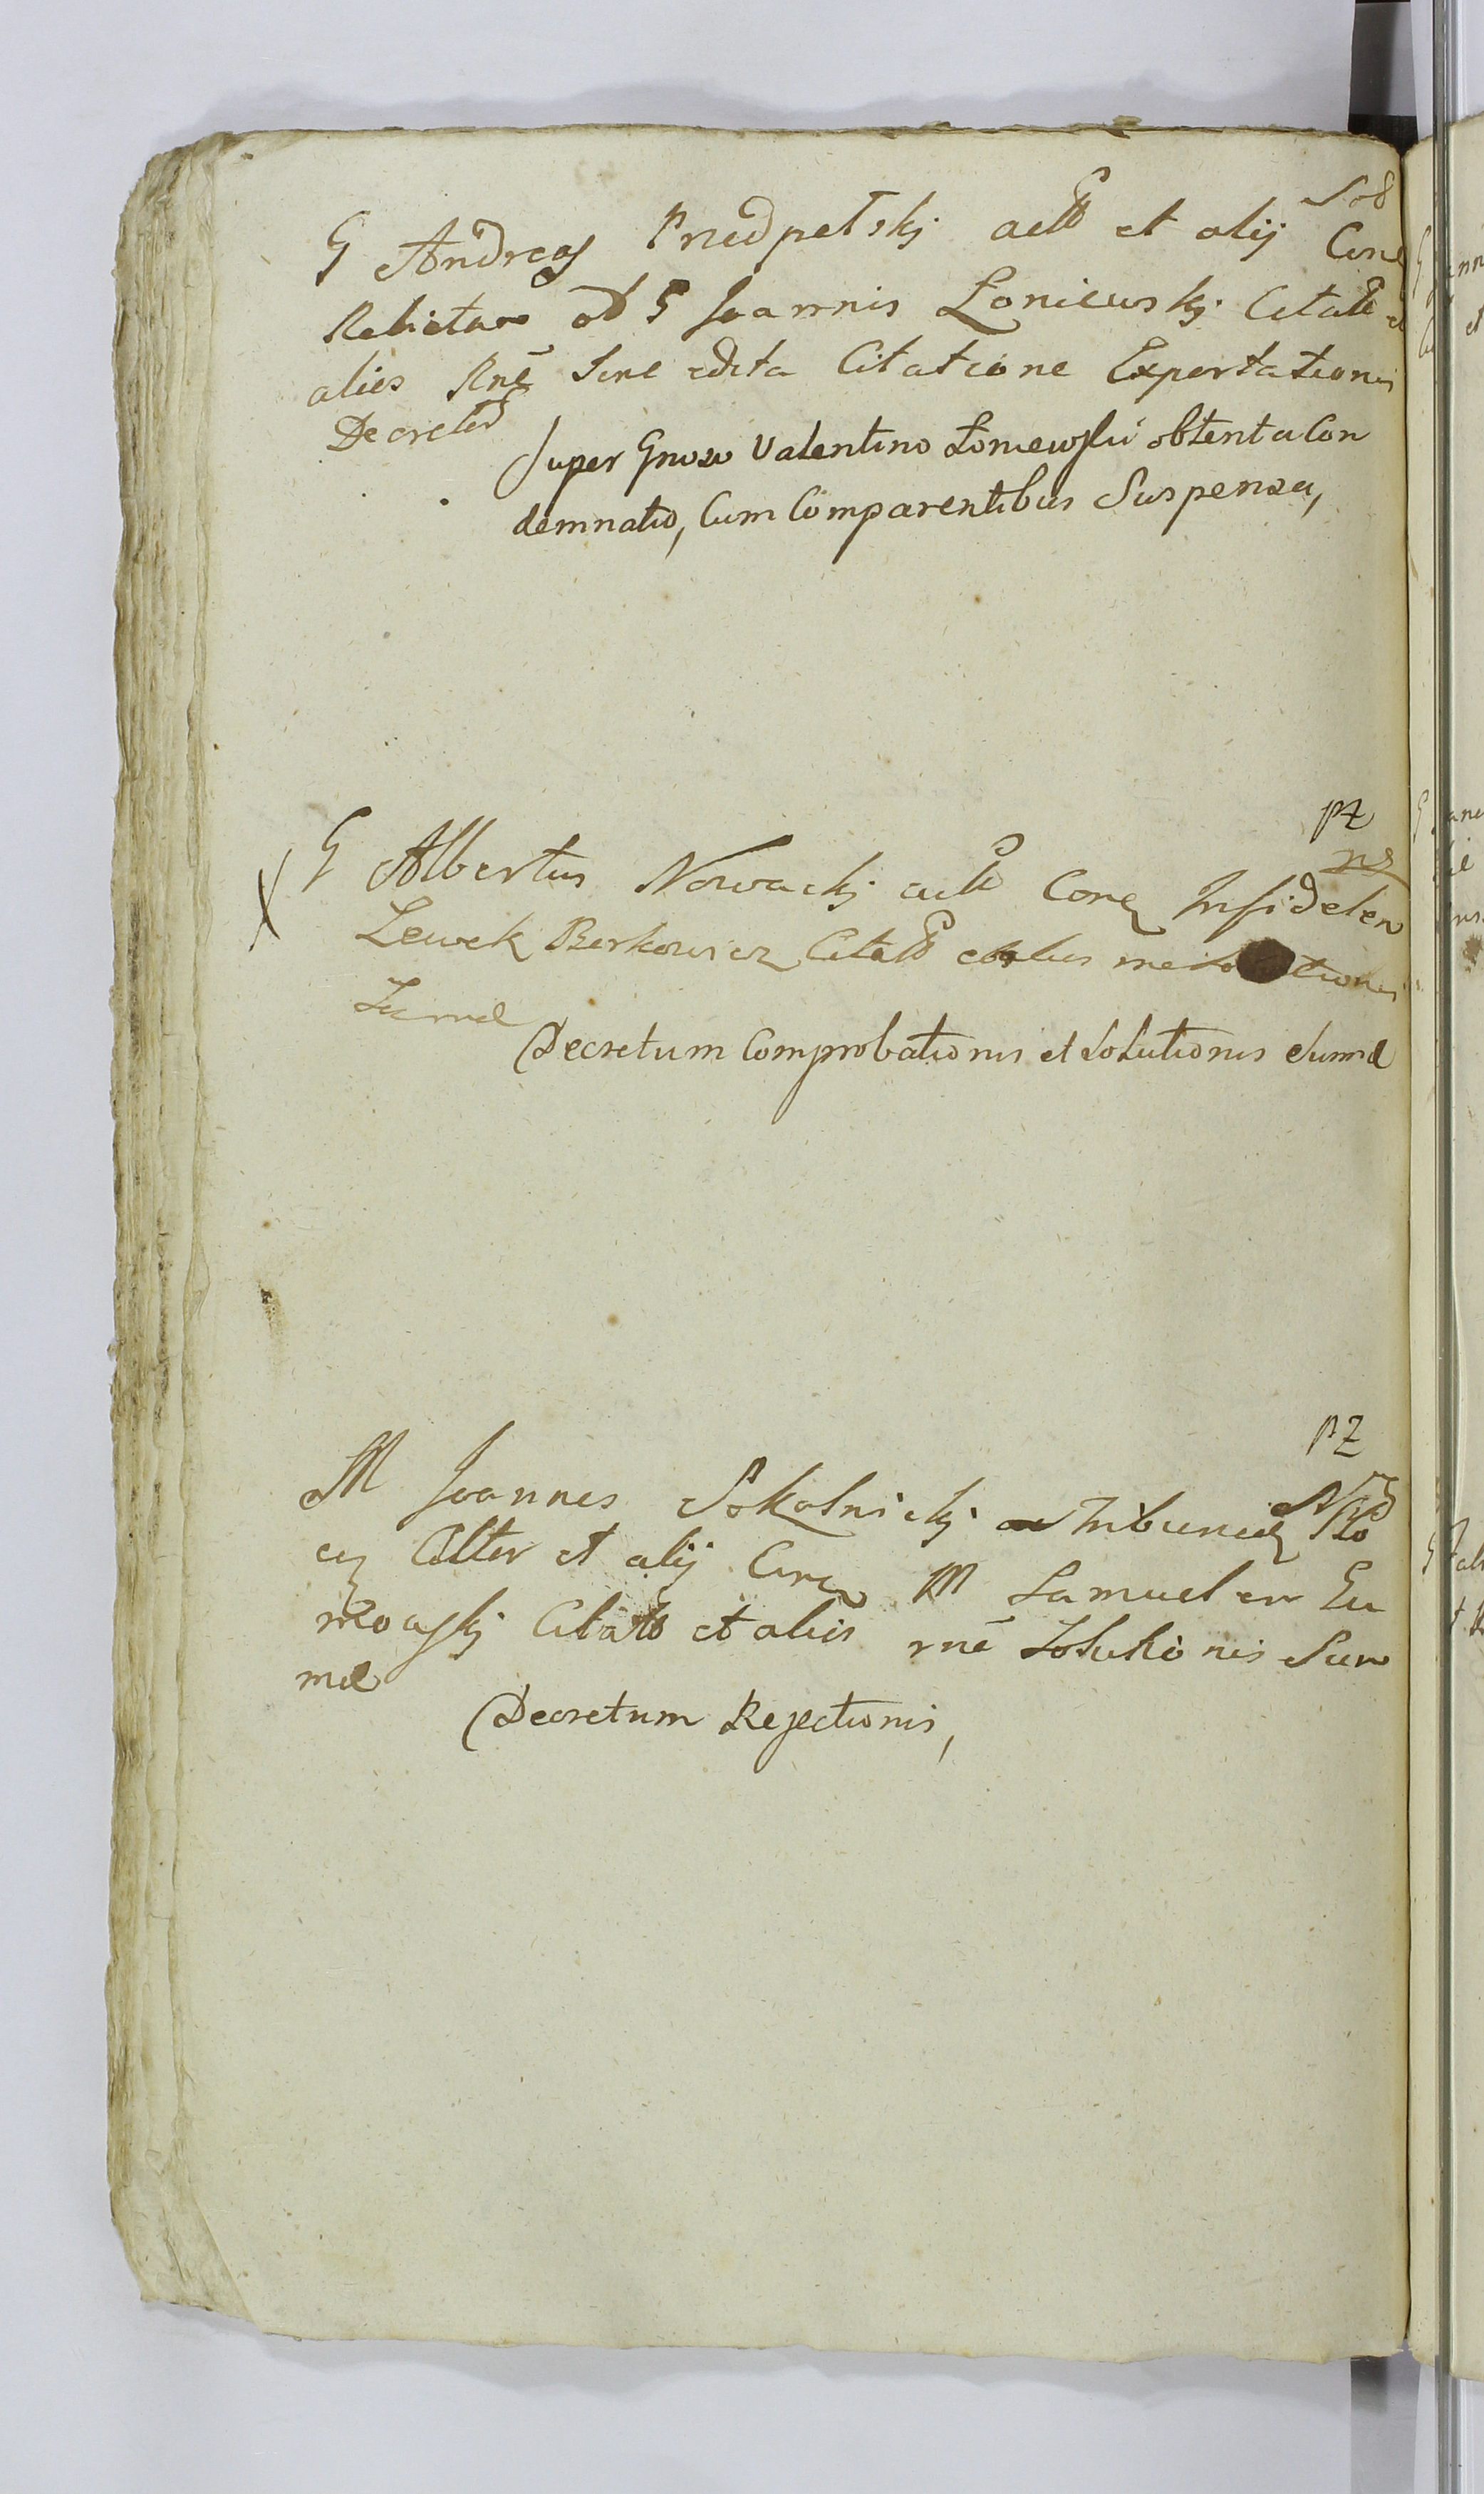 Sob
G Andreas Przedpelskj act et alij Con
Relictam ol G Joannis Łoniewskj Citat et
alios Rne Sine edita Citatione Exportationis
Decretor
Super Gnoso Valentino Łoniewski obtenta Con
demnatio, Cum Comparentibus Suspensa,
pz
ns
X G Albertus Nowackj act Con Infidelem
Lewek Berkowicz Citat
Sumæ
Decretum Comprobationis et Solutionis Summæ
PZ
M Joannes Sokolnickj Tribunus
Actor et alij Con M Samuelem Gu
mowskj Citat et alios rne Solutionis Sum
mæ
Decretum Rejectionis,